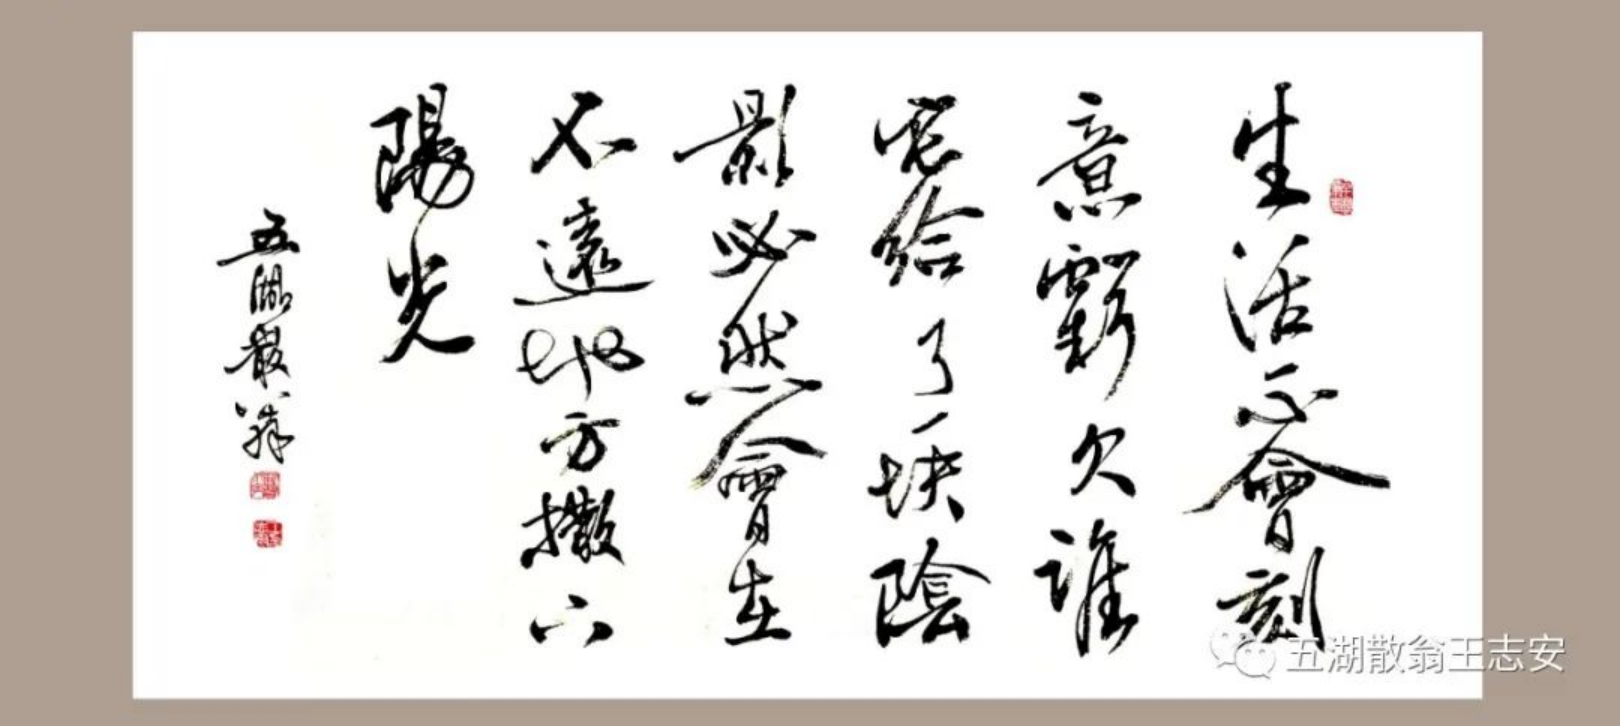 生活不會刻
意虧欠誰
它給了一块陰
影必然會在
不遠地方撒下
陽光
五湖散翁
五湖散翁王志安